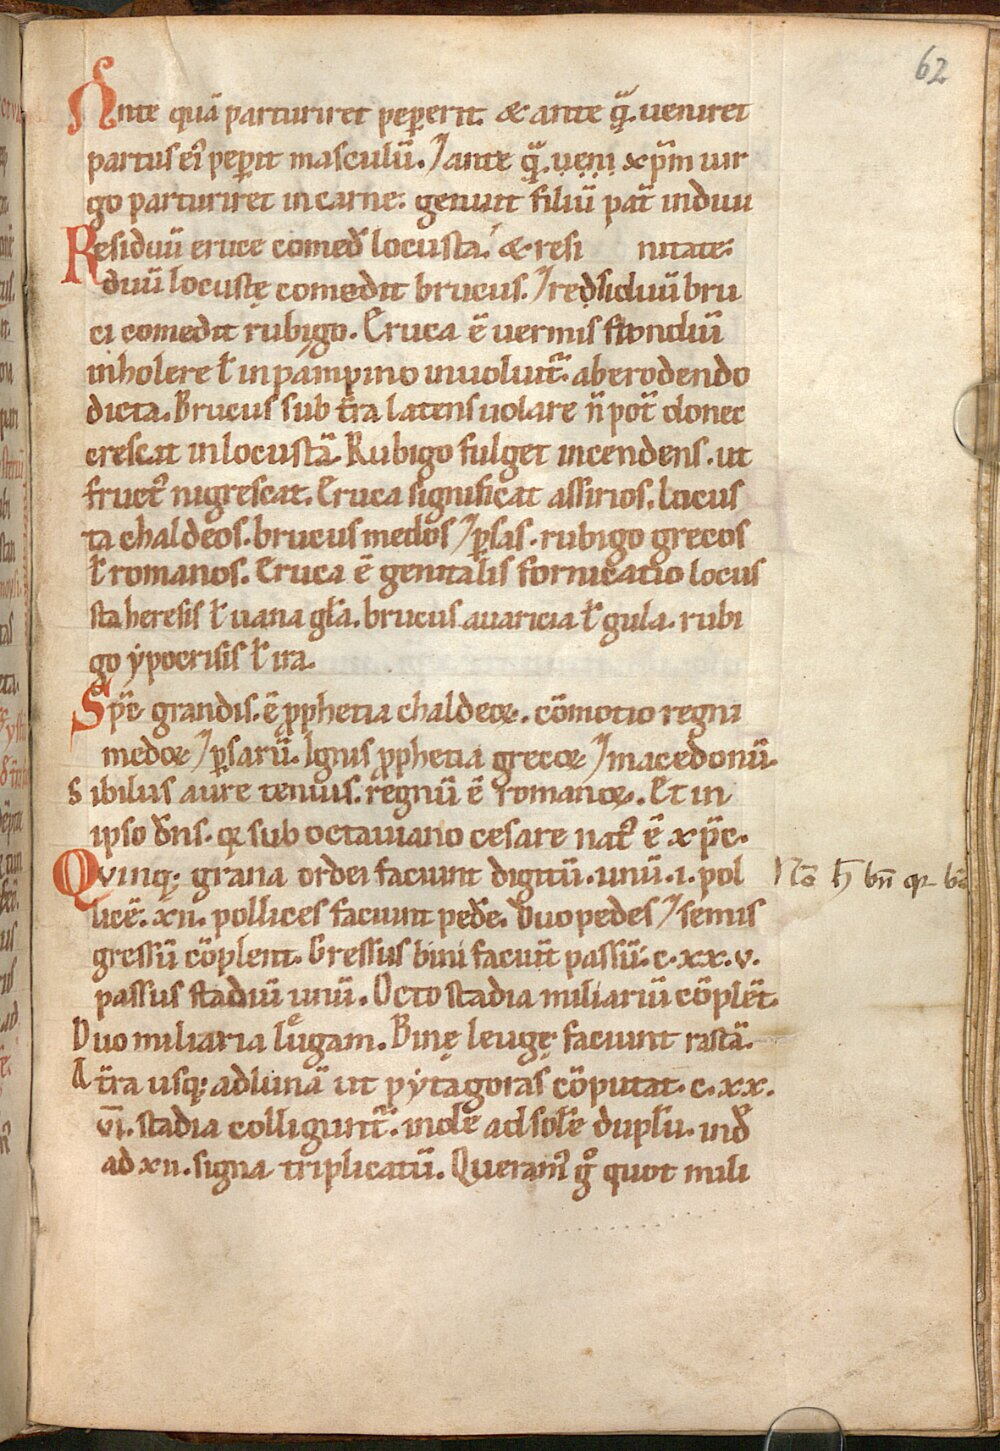 62
Ante quā parturiret peperit. & ante q̄. ueniret
partus eiꝰ pep̄it masculū. ⁊ ante q̄. ueni xp̄m uir
go parturiret in carne: genuit filiū pat̄ in diui
Residuū eruce comed̄ locusta. & resi nitate:
duū locustę comedit brucus. ⁊ residuū bru
ci comedit rubigo. Eruca ē uermis frondiū
in holere ł in pampino inuolut̄. ab erodendo
dicta. Brucus sub t̄ra latens uolare n̄ pot̄ donec
crescat in locustā. Rubigo fulget incendens. ut
fruct̄ nigrescat. Eruca significat assirios. locus
ta chaldeos. brucus medos ⁊ p̄sas. rubigo grecos
ł romanos. Eruca ē genitalis fornicatio locus
sta heresis ł uana gła. brucus auaricia ł gula. rubi
go ypocrisis ł ira.
Sp̄c grandis. ē ꝓphetia chaldeoꝝ. cōmotio regni
medoꝝ ⁊ p̄sarū. Ignis ꝓphetia grecoꝝ ⁊ macedonū.
Sibilus aure tenuis. regnū ē romanoꝝ. Et in
ipso dn̄s. q̄ sub octauiano cesare natꝰ ē xp̄c.
Quinq; grana ordei faciunt digitū. unū. i. pol
licē. xii. pollices faciunt pedē. Duo pedes ⁊ semis
gressū cōplent. Gressus bini faciūt passū. c. xx. v.
passus stadiū unū. Octo stadia miliariū cōplēt.
Duo miliaria leugam. Binę leugę faciunt rastā.
A t̄ra usq; ad lunā ut pytagoras cōputat. c. xx.
vi. stadia colligunt̄. inde ad sole duplū. ind̄
ad xii. signa triplicatū. Queramꝰ gͦ quot mili